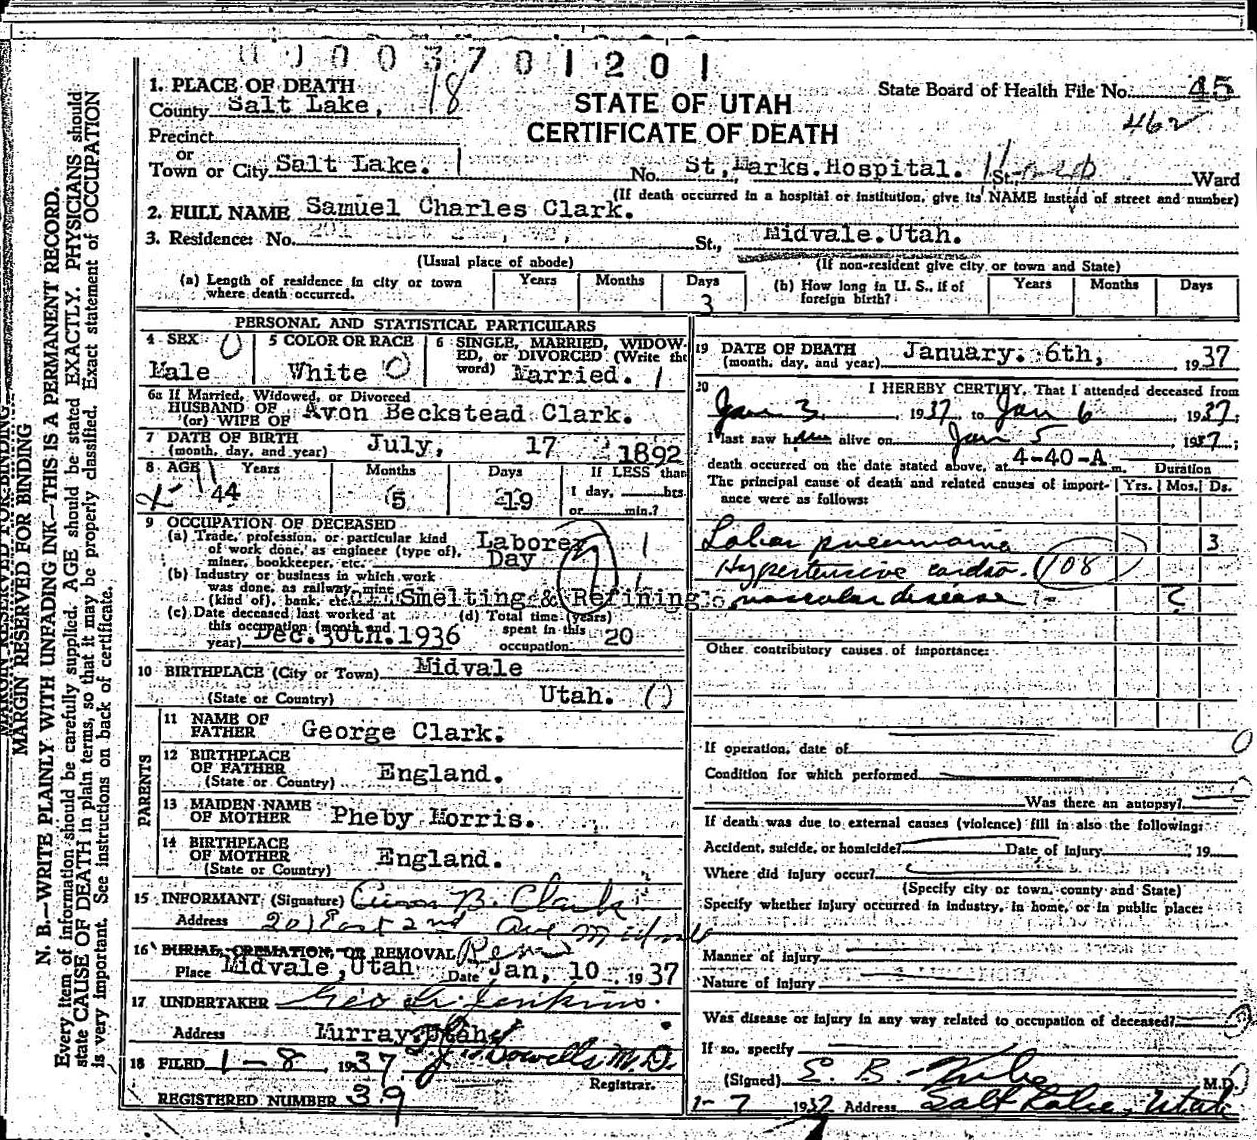 0000370 1201
1. PLACE OF DEATH
County Salt Lake, 18
STATE OF UTAH
CERTIFICATE OF DEATH
State Board of Health File No. 45
462
Precinct
or
Town or City Salt Lake. No. St, Marks. Hospital. St. Ward
(If death occurred in a hospital or institution, give its NAME instead of street and number)
2. FULL NAME Samuel Charles Clark.
3. Residence: No. St., Midvale. Utah.
(Usual place of abode) (If non-resident give city or town and State)
(a) Length of residence in city or town where death occurred. Years Months Days 3
(b) How long in U. S., if of foreign birth? Years Months Days
PERSONAL AND STATISTICAL PARTICULARS
4 SEX Male
5 COLOR OR RACE White
6 SINGLE, MARRIED, WIDOWED, or DIVORCED (Write the word) Married.
6a If Married, Widowed, or Divorced
HUSBAND OF
(or) WIFE OF Avon Beckstead Clark.
7 DATE OF BIRTH
(month, day, and year) July, 17 1892
8 AGE Years 44 Months 5 Days 19 If LESS than
1 day, hrs.
or min.?
9 OCCUPATION OF DECEASED
(a) Trade, profession, or particular kind
of work done, as engineer (type of),
miner, bookkeeper, etc. Laborer
Day
(b) Industry or business in which work
was done, as railway, mine
(kind of), bank, etc. Smelting & Refining Co.
(c) Date deceased last worked at
this occupation (month and
year) Dec. 30th. 1936
(d) Total time (years)
spent in this
occupation 20
10 BIRTHPLACE (City or Town) Midvale
(State or Country) Utah.
PARENTS
11 NAME OF
FATHER George Clark.
12 BIRTHPLACE
OF FATHER
(State or Country) England.
13 MAIDEN NAME
OF MOTHER Pheby Morris.
14 BIRTHPLACE
OF MOTHER
(State or Country) England.
15 INFORMANT (Signature) Avon B. Clark
Address 201 East 2nd Ave Midvale
16 BURIAL, CREMATION, OR REMOVAL Rem
Place Midvale, Utah Date Jan, 10 1937
17 UNDERTAKER Geo Jenkins.
Address Murray, Utah
18 FILED 1-8 1937. Howells M.D.
Registrar.
REGISTERED NUMBER 39
19 DATE OF DEATH
(month, day, and year) January. 6th, 1937
20 I HEREBY CERTIFY, That I attended deceased from
Jan 3 1937 to Jan 6 1937;
I last saw him alive on Jan 5 1937;
death occurred on the date stated above, at 4-40-A m. Duration
The principal cause of death and related causes of importance were as follows: Yrs. Mos. Ds.
Lobar pneumonia 3
Hypertensive cardio- 108
vascular disease ?
Other contributory causes of importance:
If operation, date of
Condition for which performed
Was there an autopsy?
If death was due to external causes (violence) fill in also the following:
Accident, suicide, or homicide? Date of injury 19
Where did injury occur?
(Specify city or town, county and State)
Specify whether injury occurred in industry, in home, or in public place:
Manner of injury
Nature of injury
Was disease or injury in any way related to occupation of deceased?
If so, specify
(Signed) E. B. M.D.
1-7 1937 Address Salt Lake, Utah
MARGIN RESERVED FOR BINDING
N. B.—WRITE PLAINLY WITH UNFADING INK—THIS IS A PERMANENT RECORD.
Every item of information should be carefully supplied. AGE should be stated EXACTLY. PHYSICIANS should
state CAUSE OF DEATH in plain terms, so that it may be properly classified. Exact statement of OCCUPATION
is very important. See instructions on back of certificate.